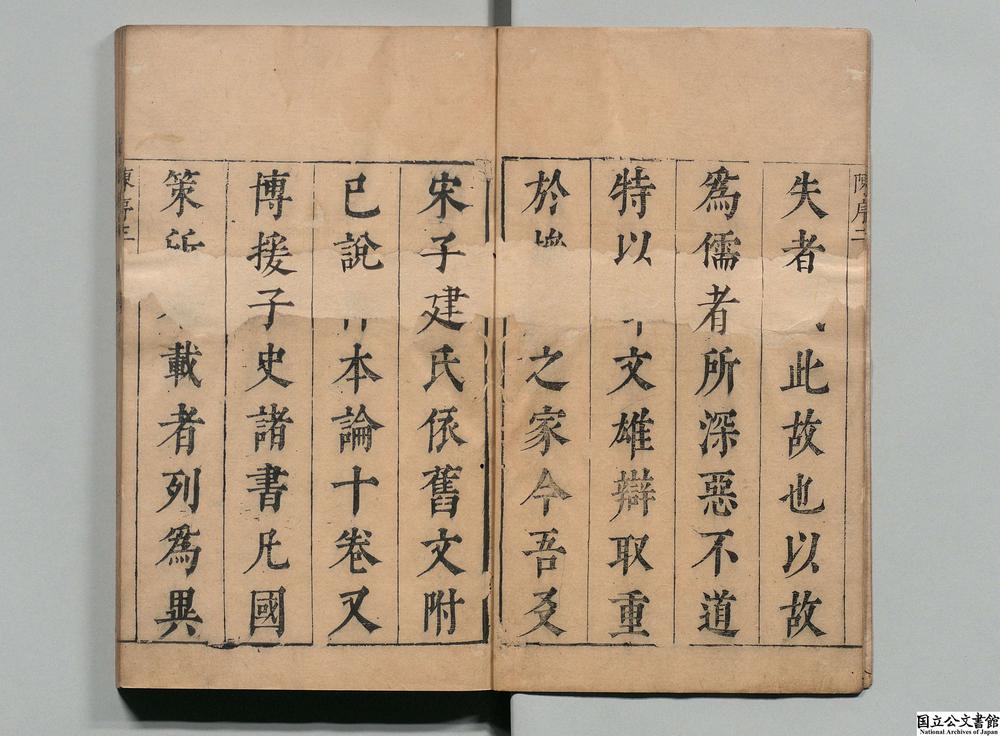 陳序二
失者 此故也以故
爲儒者所深惡不道
特以 文雄辯取重
於 之家今吾友
宋子建氏依舊文附
已說 本論十卷又
博援子史諸書凡國
策所 載者列爲異
陳序三
国立公文書館
National Archives of Japan